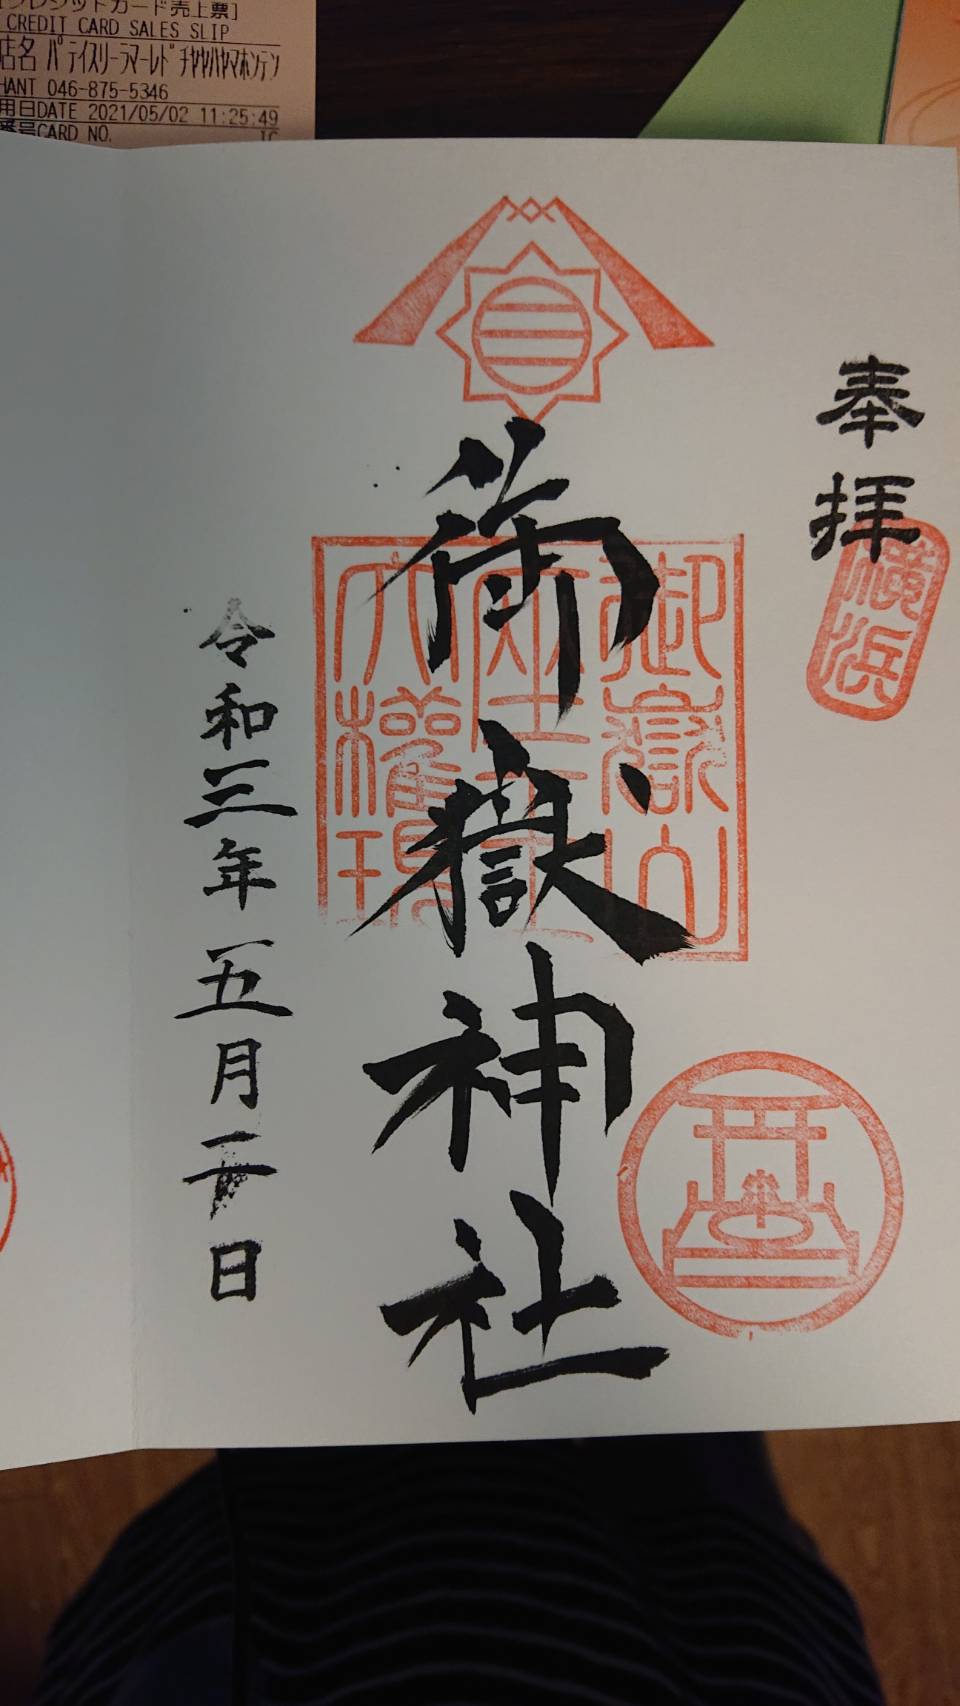 クレジットカード売上票]
CREDIT CARD SALES SLIP
店名 パティスリーラマーレドチャヤハヤマホンテン
HANT 046-875-5346
用日DATE 2021/05/02 11:25:49
番号CARD NO. IC
奉拝
横浜
御嶽神社
御嶽山
座王
大権現
令和三年五月一日